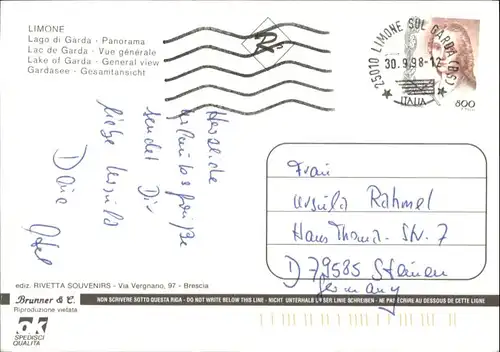 LIMONE
Lago di Garda - Panorama
Lac de Garda - Vue générale
Lake of Garda - General view
Gardasee - Gesamtansicht
25010 LIMONE SUL GARDA (BS)
30.9.98-12
ITALIA
800
Herzliche
Urlaubsgrüße
sendet Dir
liebe Ursula
Deine
Frau
Ursula Rahmel
Hans Thoma-Str. 7
D 79585 Steinen
Germany
ediz. RIVETTA SOUVENIRS - Via Vergnano, 97 - Brescia
Brunner & C.
Riproduzione vietata
NON SCRIVERE SOTTO QUESTA RIGA - DO NOT WRITE BELOW THIS LINE - NICHT UNTERHALB DIESER LINIE SCHREIBEN - NE PAS ECRIRE AU DESSOUS DE CETTE LIGNE
SPEDISCI
QUALITÀ